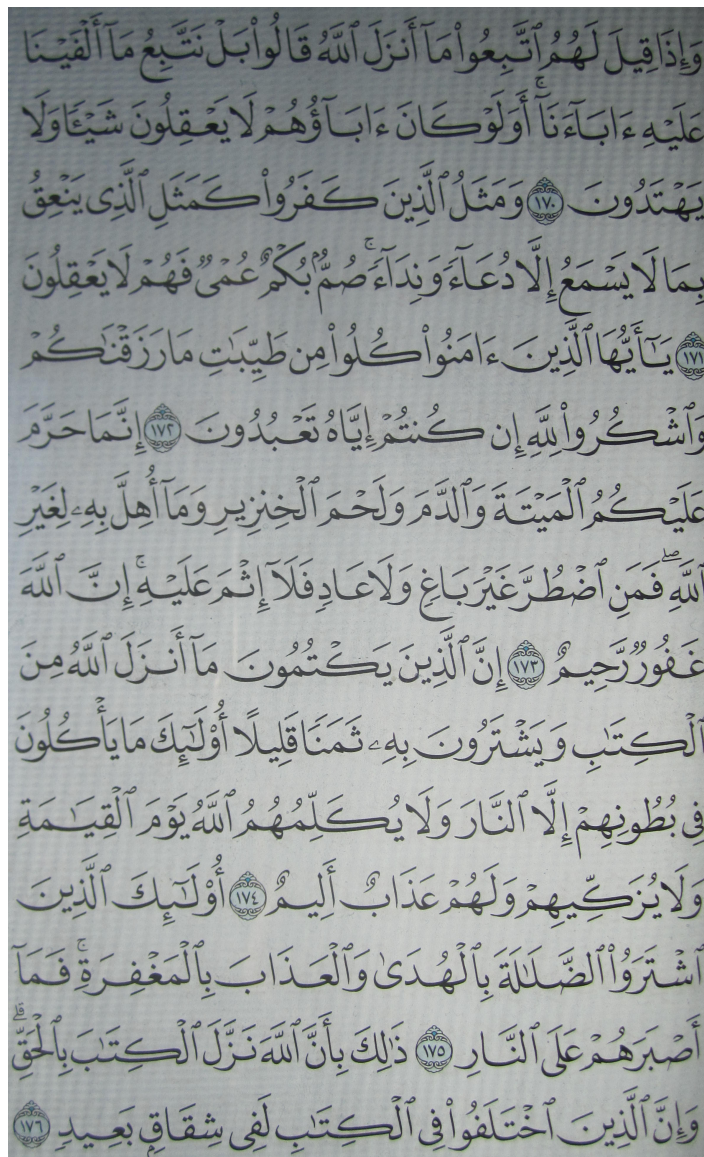 وَإِذَا قِيلَ لَهُمُ ٱتَّبِعُوا۟ مَآ أَنزَلَ ٱللَّهُ قَالُوا۟ بَلْ نَتَّبِعُ مَآ أَلْفَيْنَا
عَلَيْهِ ءَابَآءَنَآ ۚ أَوَلَوْ كَانَ ءَابَآؤُهُمْ لَا يَعْقِلُونَ شَيْـًٔا وَلَا
يَهْتَدُونَ ١٧٠ وَمَثَلُ ٱلَّذِينَ كَفَرُوا۟ كَمَثَلِ ٱلَّذِى يَنْعِقُ
بِمَا لَا يَسْمَعُ إِلَّا دُعَآءً وَنِدَآءً ۚ صُمٌّۢ بُكْمٌ عُمْىٌ فَهُمْ لَا يَعْقِلُونَ
١٧١ يَـٰٓأَيُّهَا ٱلَّذِينَ ءَامَنُوا۟ كُلُوا۟ مِن طَيِّبَـٰتِ مَا رَزَقْنَـٰكُمْ
وَٱشْكُرُوا۟ لِلَّهِ إِن كُنتُمْ إِيَّاهُ تَعْبُدُونَ ١٧٢ إِنَّمَا حَرَّمَ
عَلَيْكُمُ ٱلْمَيْتَةَ وَٱلدَّمَ وَلَحْمَ ٱلْخِنزِيرِ وَمَآ أُهِلَّ بِهِۦ لِغَيْرِ
ٱللَّهِ ۖ فَمَنِ ٱضْطُرَّ غَيْرَ بَاغٍ وَلَا عَادٍ فَلَآ إِثْمَ عَلَيْهِ ۚ إِنَّ ٱللَّهَ
غَفُورٌ رَّحِيمٌ ١٧٣ إِنَّ ٱلَّذِينَ يَكْتُمُونَ مَآ أَنزَلَ ٱللَّهُ مِنَ
ٱلْكِتَـٰبِ وَيَشْتَرُونَ بِهِۦ ثَمَنًا قَلِيلًا أُو۟لَـٰٓئِكَ مَا يَأْكُلُونَ
فِى بُطُونِهِمْ إِلَّا ٱلنَّارَ وَلَا يُكَلِّمُهُمُ ٱللَّهُ يَوْمَ ٱلْقِيَـٰمَةِ
وَلَا يُزَكِّيهِمْ وَلَهُمْ عَذَابٌ أَلِيمٌ ١٧٤ أُو۟لَـٰٓئِكَ ٱلَّذِينَ
ٱشْتَرَوُا۟ ٱلضَّلَـٰلَةَ بِٱلْهُدَىٰ وَٱلْعَذَابَ بِٱلْمَغْفِرَةِ ۚ فَمَآ
أَصْبَرَهُمْ عَلَى ٱلنَّارِ ١٧٥ ذَٰلِكَ بِأَنَّ ٱللَّهَ نَزَّلَ ٱلْكِتَـٰبَ بِٱلْحَقِّ ۗ
وَإِنَّ ٱلَّذِينَ ٱخْتَلَفُوا۟ فِى ٱلْكِتَـٰبِ لَفِى شِقَاقٍۭ بَعِيدٍ ١٧٦